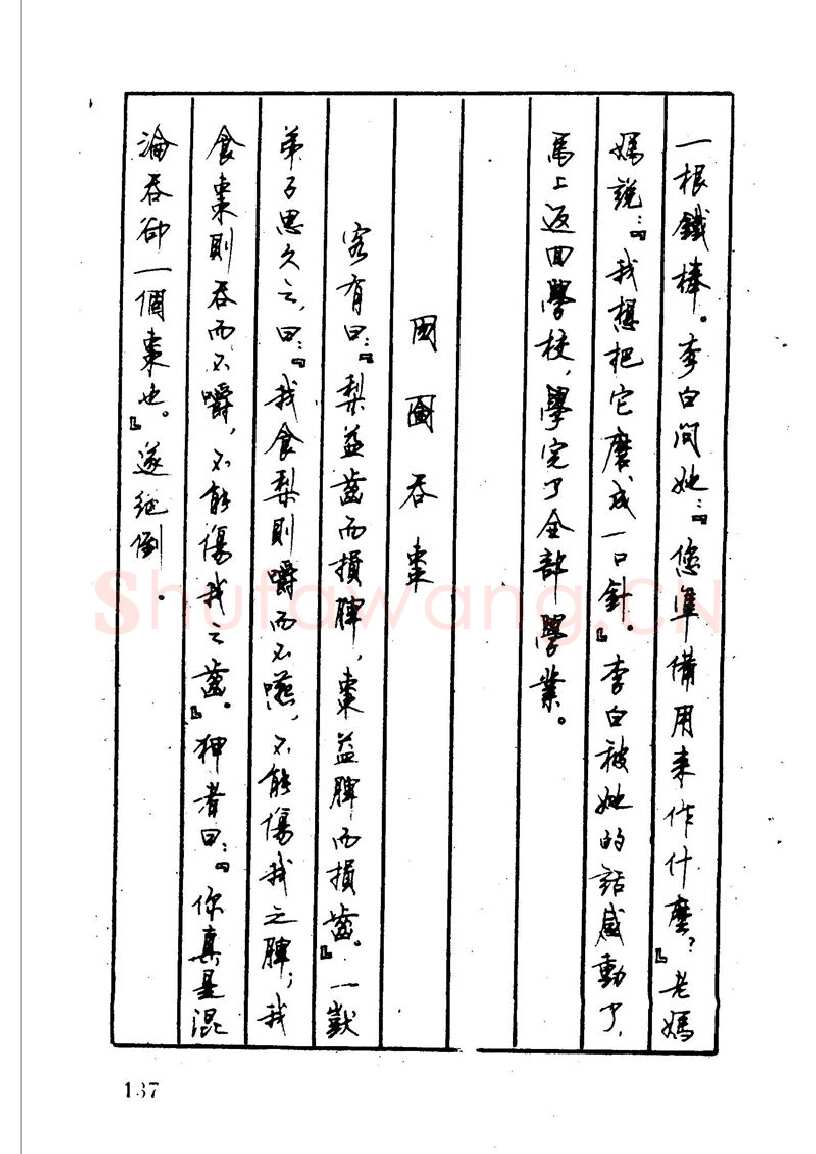 一根鐵棒。李白問她：『您準備用来作什麼？』老媽
媽說：『我想把它磨成一口針。』李白被她的話感動了，
馬上返回學校，學完了全部學業。
囫圇吞棗
客有曰：『梨益齒而損脾，棗益脾而損齒。』一獃
弟子思久之，曰：『我食梨則嚼而不嚥，不能傷我之脾；我
食棗則吞而不嚼，不能傷我之齒。』狎者曰：『你真是混
淪吞卻一個棗也。』遂絕倒。
Shufawang.CN
137